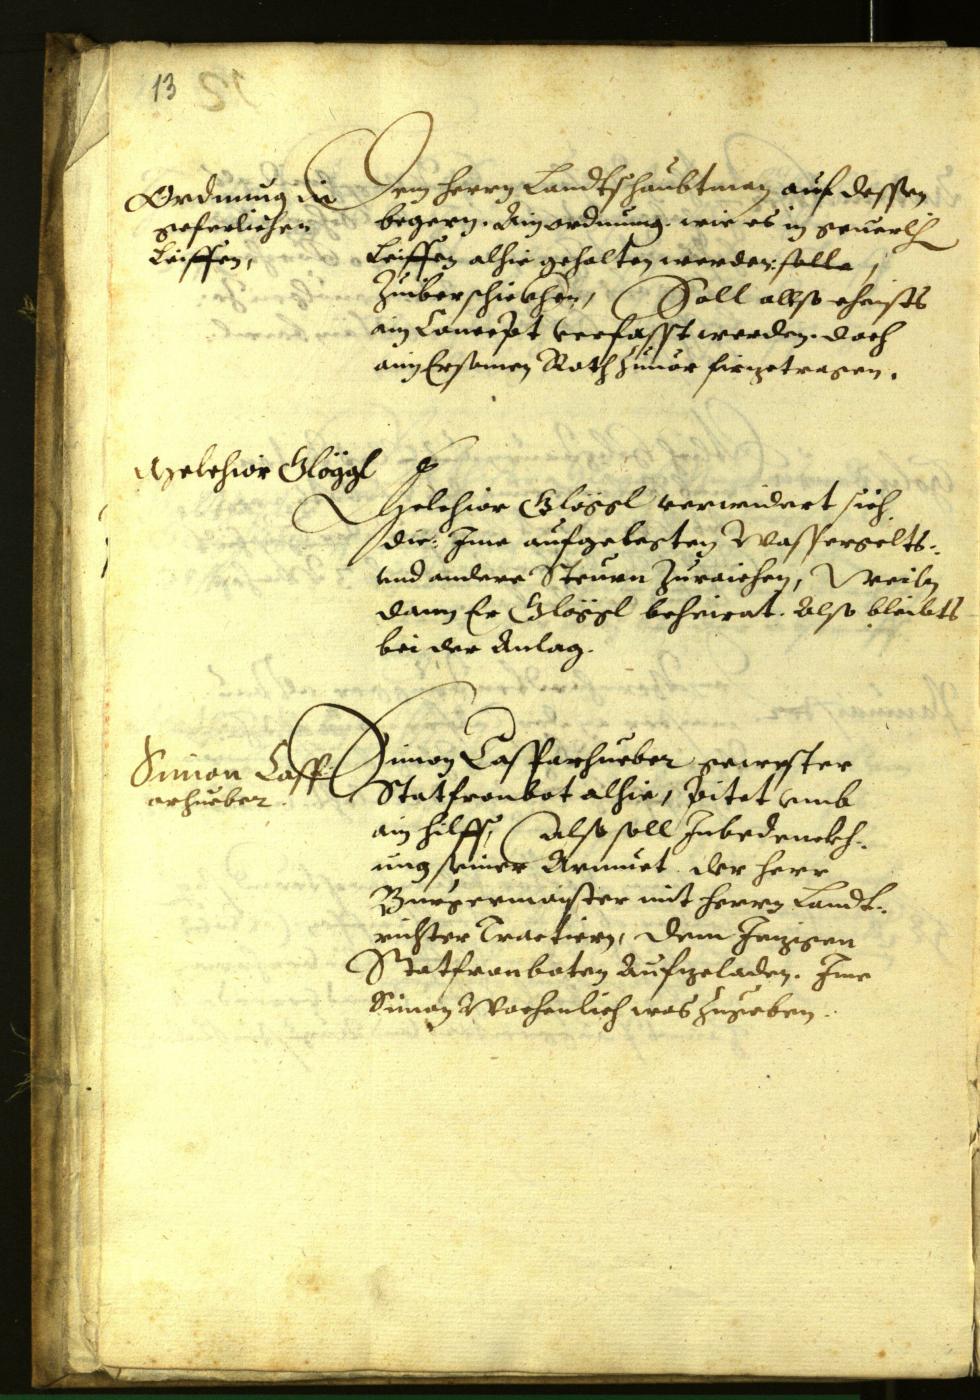 13
Ordnung in
geferlichen
Leiffen,
Dem herrn Landtshaubtman auf dessen
begern. Ain ordnung. wie es in geuerlich
Leiffen alhie gehalten werden solle,
Zuiberschickhen, Soll allso ehists
ain Concept verfasst werden. doch
aim Ersamen Rath zuuor firgetragen.
Melchior Glöggl
Melchior Glöggl verwidert sich
die: Ime aufgelegten Wassergelts-
vnd andere Steurn Zuraichen, Weiln
dann Er Glöggl beheirat. Also bleibts
bei der Anlag.
Simon Casp
arhueber.
Simon Casparhueber gewester
Statfronbot alhie, pitet vmb
ain hilff, Also soll Inbedenckh-
ung seiner Armuet der herr
Burgermaister mit herrn Landt-
richter Tractiern, dem Jezigen
Statfronboten Aufzeladen. Ime
Simon Wochenlich was zugeben.